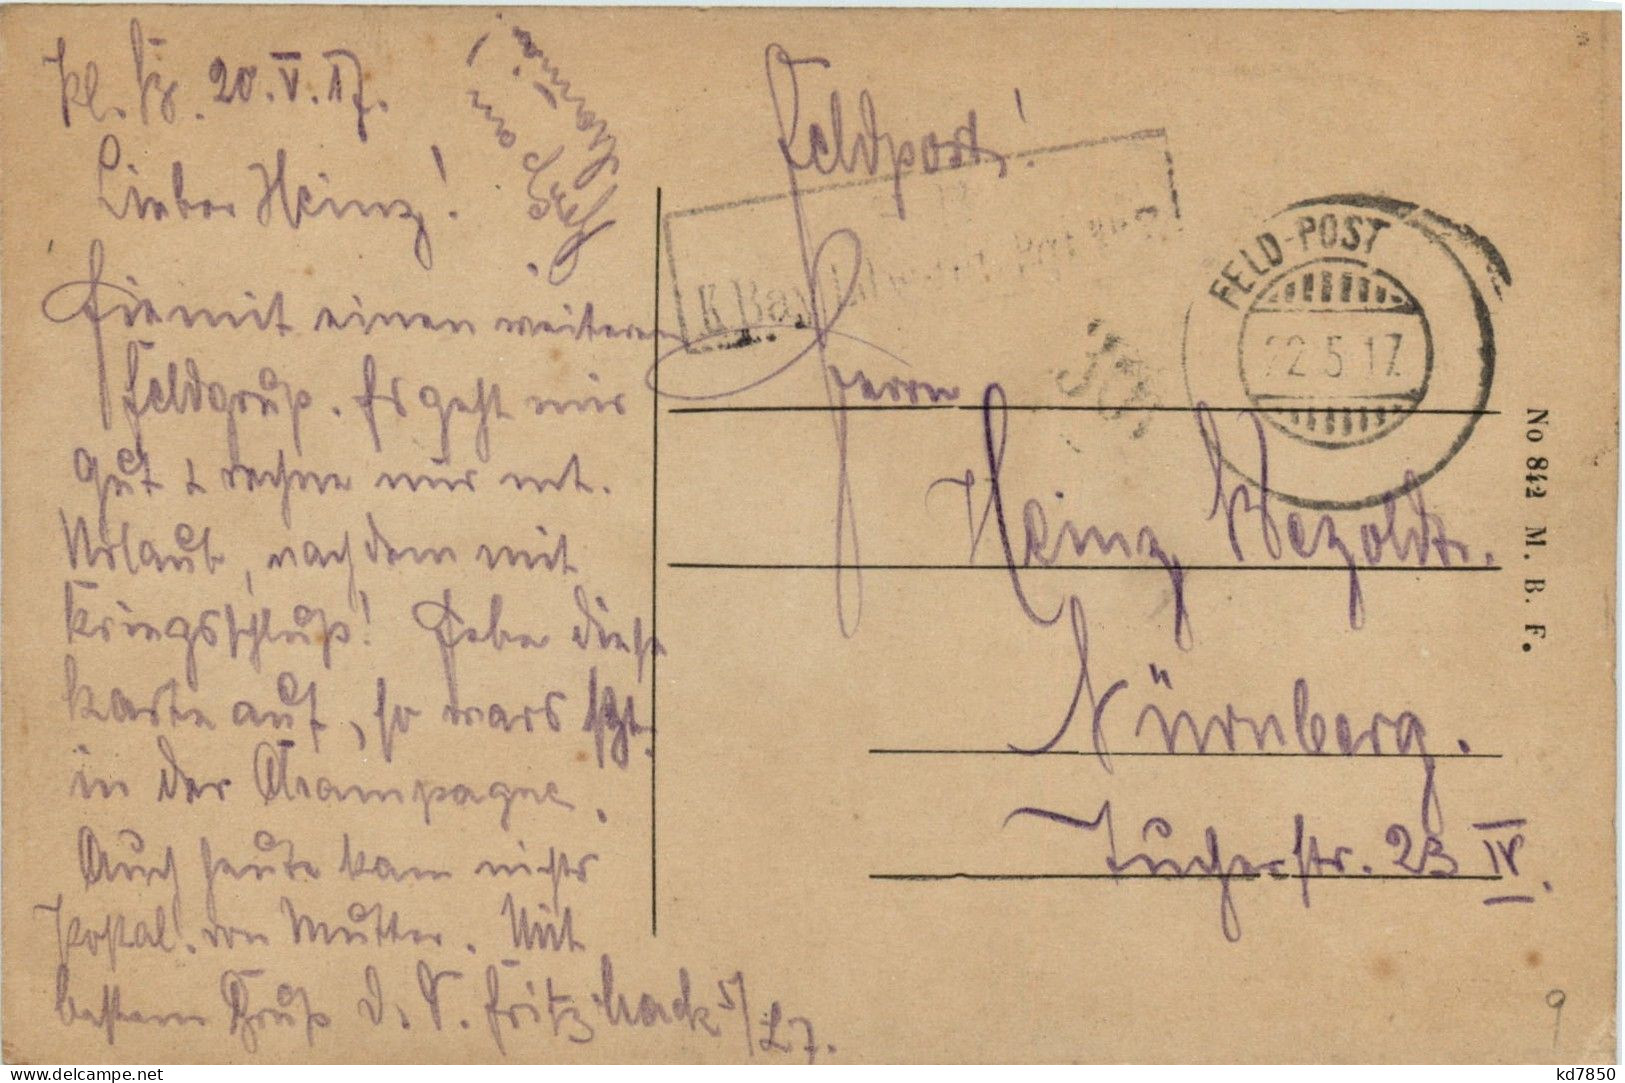 20.V.17.
Lieber Heinz!
Hiemit einen weiteren
Feldgruß. Es geht mir
gut & rechne nur mit
Urlaub, nach dem mit
Kriegsschluß! Hebe diese
Karte auf, so wars jetzt
in der Champagne.
Auch heute kam nichts
von Mutter. Mit
bestem Gruß d. V. Fritz
Feldpost!
K. Bay.
FELD-POST
22.5.17.
Herrn
Heinz Bezold.
Nürnberg.
Tucherstr. 23 IV.
No 842 M. B. F.
9
kd7850
www.delcampe.net